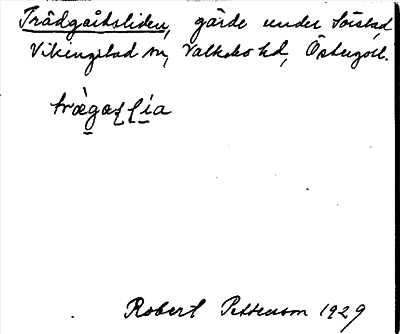 Trädgårdsliden, gärde under Sörstad
Vikingstad sn, Valkebo hd, Östergötl.
Robert Pettersson 1929